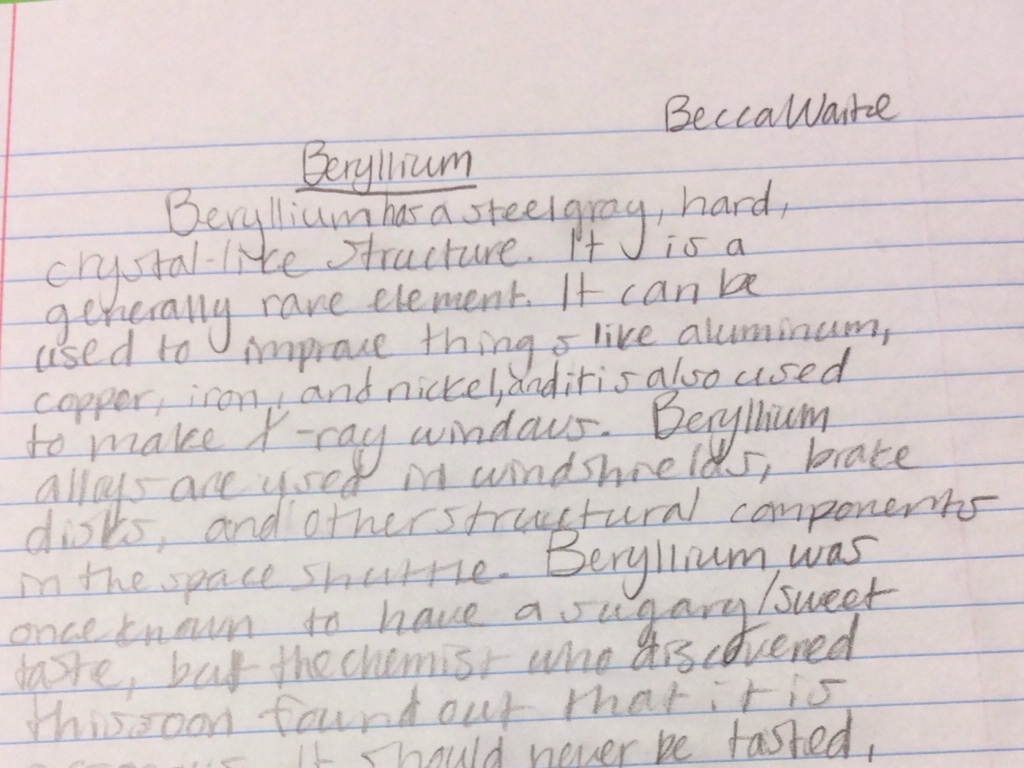 Becca
Beryllium
Beryllium has a steel gray, hard,
crystal-like structure. It is a
generally rare element. It can be
used to improve things like aluminum,
copper, iron, and nickel, and it is also used
to make X-ray windows. Beryllium
alloys are used in windshields, brake
disks, and other structural components
in the space shuttle. Beryllium was
once known to have a sugary/sweet
taste, but the chemist who discovered
this soon found out that it is
It should never be tasted,